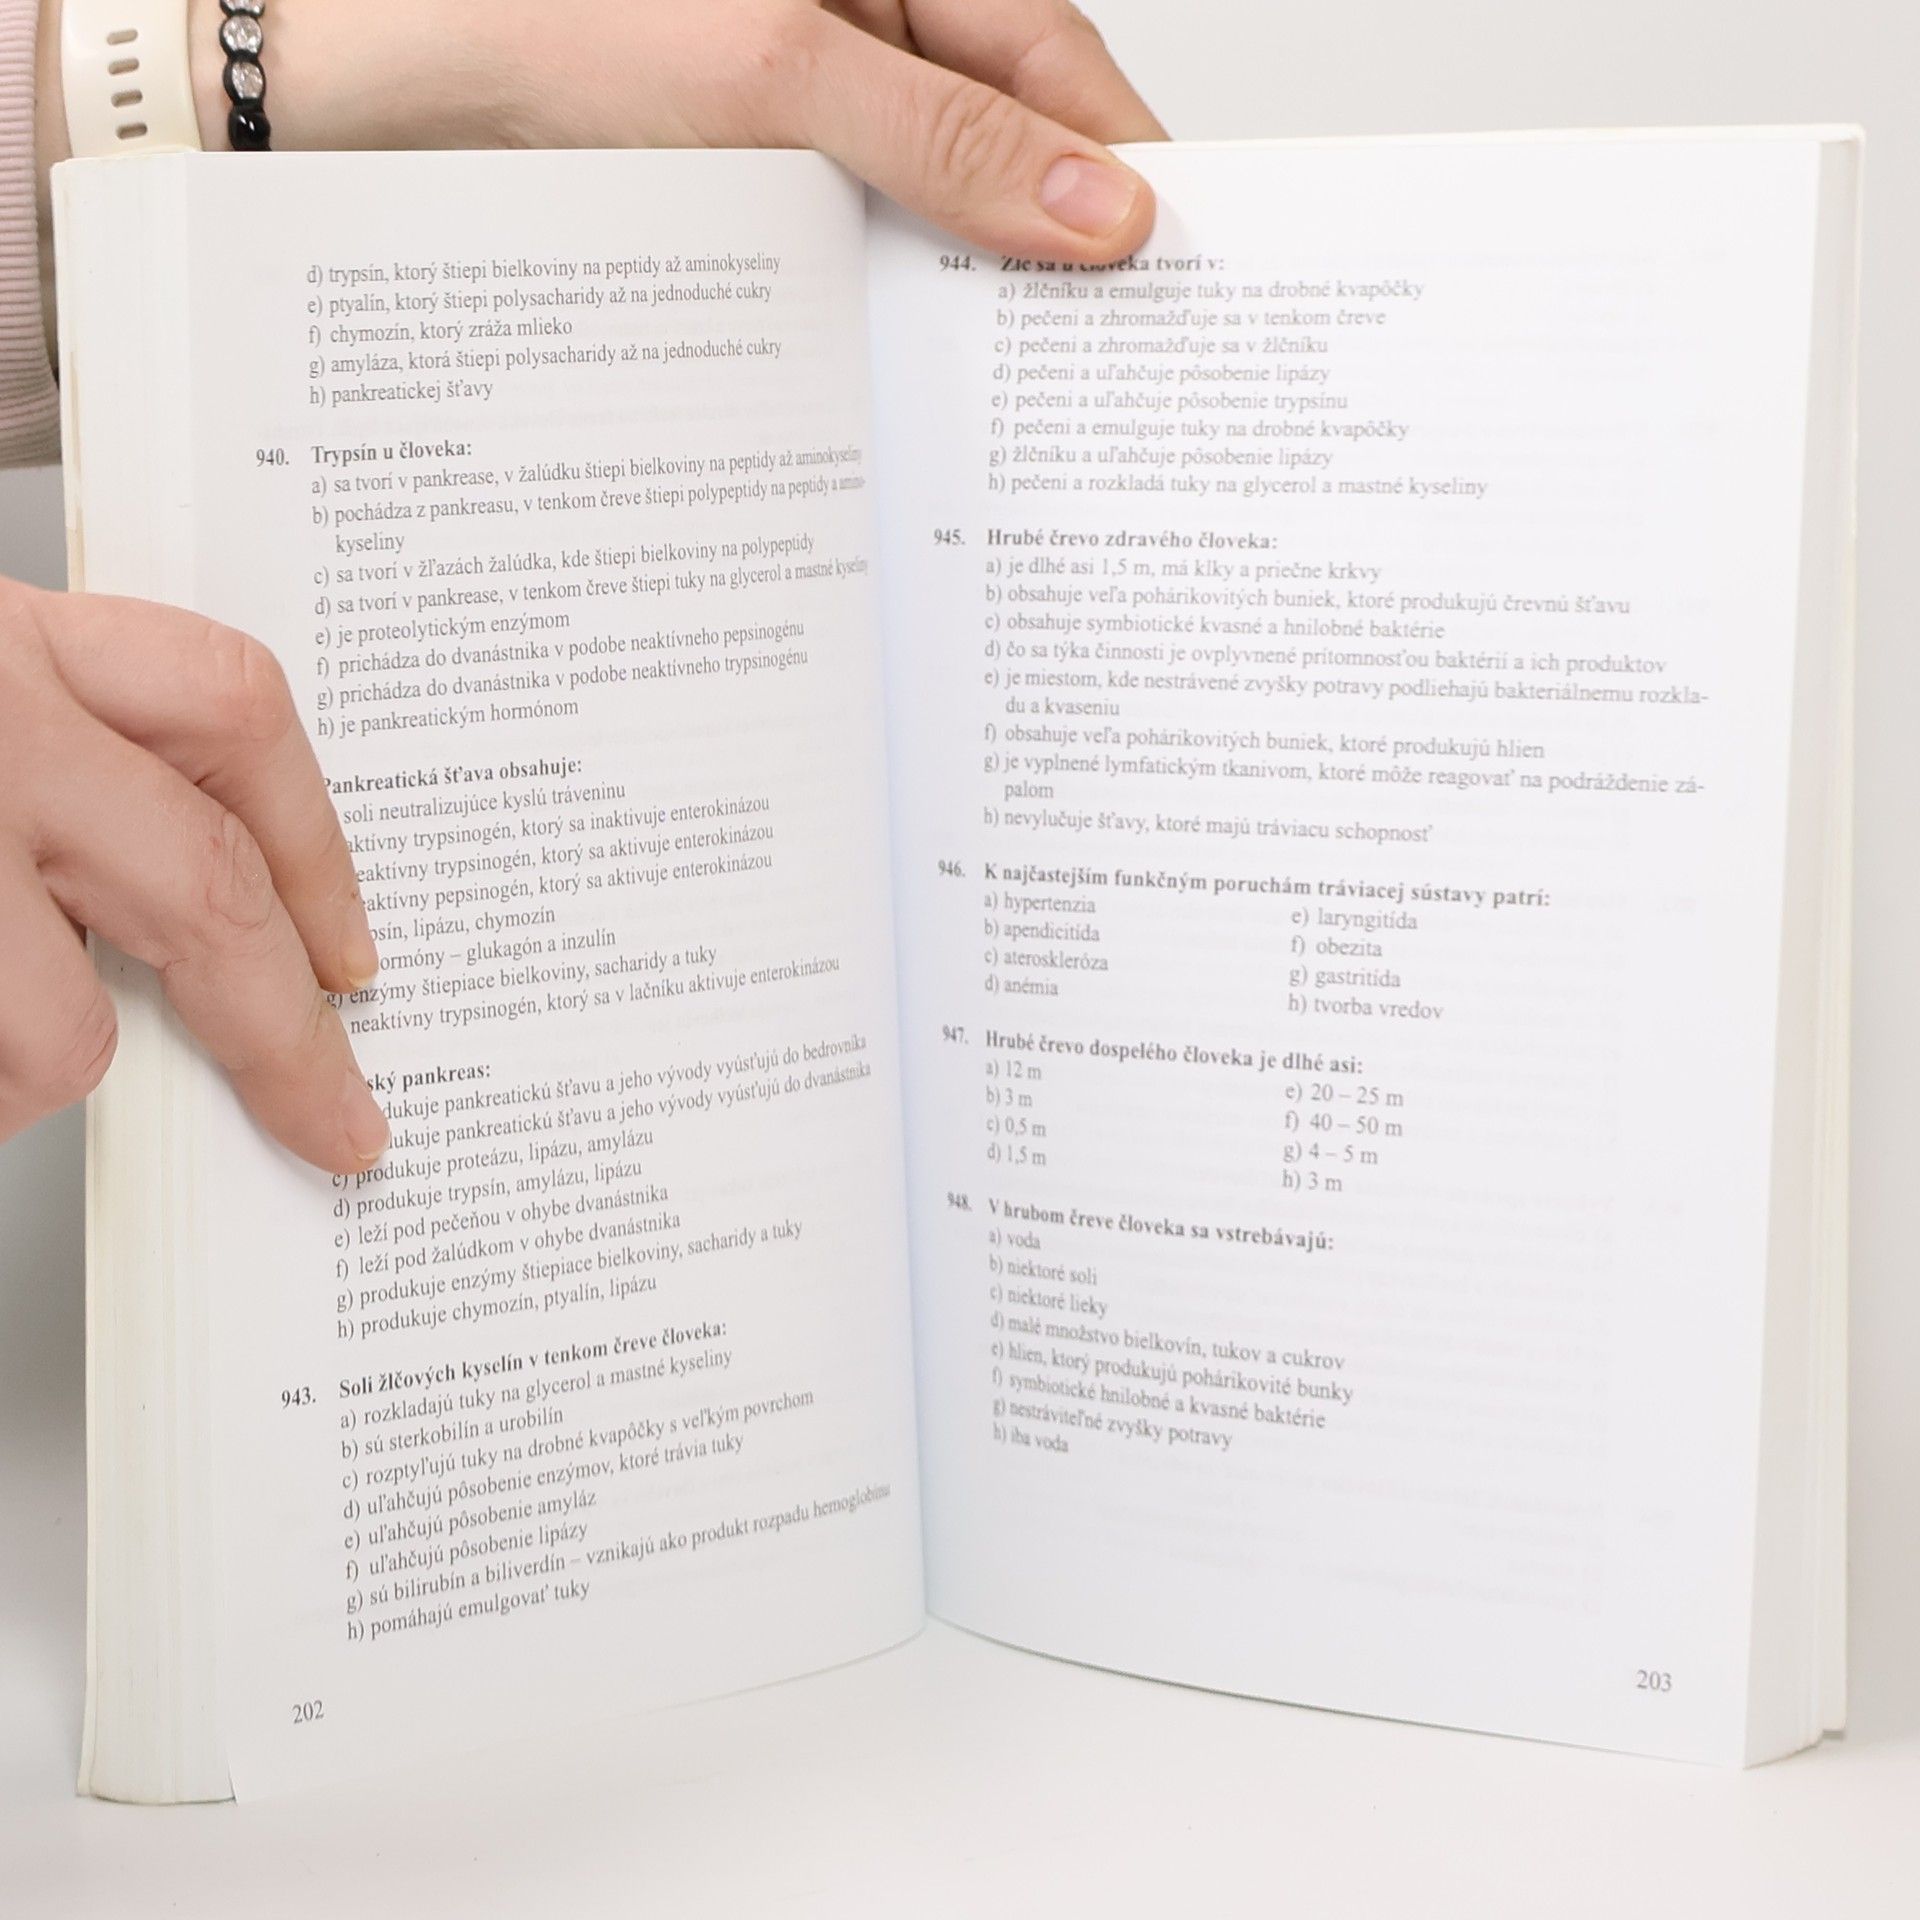 d) trypsín, ktorý štiepi bielkoviny na peptidy až aminokyseliny
e) ptyalín, ktorý štiepi polysacharidy až na jednoduché cukry
f) chymozín, ktorý zráža mlieko
g) amyláza, ktorá štiepi polysacharidy až na jednoduché cukry
h) pankreatickej šťavy
940. Trypsín u človeka:
a) sa tvorí v pankrease, v žalúdku štiepi bielkoviny na peptidy až aminokyseliny
b) pochádza z pankreasu, v tenkom čreve štiepi polypeptidy na peptidy a amino-
kyseliny
c) sa tvorí v žľazách žalúdka, kde štiepi bielkoviny na polypeptidy
d) sa tvorí v pankrease, v tenkom čreve štiepi tuky na glycerol a mastné kyseliny
e) je proteolytickým enzýmom
f) prichádza do dvanástnika v podobe neaktívneho pepsinogénu
g) prichádza do dvanástnika v podobe neaktívneho trypsinogénu
h) je pankreatickým hormónom
Pankreatická šťava obsahuje:
soli neutralizujúce kyslú tráveninu
trypsinogén, ktorý sa inaktivuje enterokinázou
trypsinogén, ktorý sa aktivuje enterokinázou
pepsinogén, ktorý sa aktivuje enterokinázou
lipázu, chymozín
– glukagón a inzulín
g) enzýmy štiepiace bielkoviny, sacharidy a tuky
neaktívny trypsinogén, ktorý sa v lačníku aktivuje enterokinázou
pankreas:
pankreatickú šťavu a jeho vývody vyúsťujú do bedrovníka
pankreatickú šťavu a jeho vývody vyúsťujú do dvanástnika
c) produkuje proteázu, lipázu, amylázu
d) produkuje trypsín, amylázu, lipázu
e) leží pod pečeňou v ohybe dvanástnika
f) leží pod žalúdkom v ohybe dvanástnika
g) produkuje enzýmy štiepiace bielkoviny, sacharidy a tuky
h) produkuje chymozín, ptyalín, lipázu
943. Soli žlčových kyselín v tenkom čreve človeka:
a) rozkladajú tuky na glycerol a mastné kyseliny
b) sú sterkobilín a urobilín
c) rozptyľujú tuky na drobné kvapôčky s veľkým povrchom
d) uľahčujú pôsobenie enzýmov, ktoré trávia tuky
e) uľahčujú pôsobenie amyláz
f) uľahčujú pôsobenie lipázy
g) sú bilirubín a biliverdín – vznikajú ako produkt rozpadu hemoglobínu
h) pomáhajú emulgovať tuky
202
944. Žlč sa u človeka tvorí v:
a) žlčníku a emulguje tuky na drobné kvapôčky
b) pečeni a zhromažďuje sa v tenkom čreve
c) pečeni a zhromažďuje sa v žlčníku
d) pečeni a uľahčuje pôsobenie lipázy
e) pečeni a uľahčuje pôsobenie trypsínu
f) pečeni a emulguje tuky na drobné kvapôčky
g) žlčníku a uľahčuje pôsobenie lipázy
h) pečeni a rozkladá tuky na glycerol a mastné kyseliny
945. Hrubé črevo zdravého človeka:
a) je dlhé asi 1,5 m, má klky a priečne krkvy
b) obsahuje veľa pohárikovitých buniek, ktoré produkujú črevnú šťavu
c) obsahuje symbiotické kvasné a hnilobné baktérie
d) čo sa týka činnosti je ovplyvnené prítomnosťou baktérií a ich produktov
e) je miestom, kde nestrávené zvyšky potravy podliehajú bakteriálnemu rozkla-
du a kvaseniu
f) obsahuje veľa pohárikovitých buniek, ktoré produkujú hlien
g) je vyplnené lymfatickým tkanivom, ktoré môže reagovať na podráždenie zá-
palom
h) nevylučuje šťavy, ktoré majú tráviacu schopnosť
946. K najčastejším funkčným poruchám tráviacej sústavy patrí:
a) hypertenzia
b) apendicitída
c) ateroskleróza
d) anémia
e) laryngitída
f) obezita
g) gastritída
h) tvorba vredov
947. Hrubé črevo dospelého človeka je dlhé asi:
a) 12 m
b) 3 m
c) 0,5 m
d) 1,5 m
e) 20 – 25 m
f) 40 – 50 m
g) 4 – 5 m
h) 3 m
948. V hrubom čreve človeka sa vstrebávajú:
a) voda
b) niektoré soli
c) niektoré lieky
d) malé množstvo bielkovín, tukov a cukrov
e) hlien, ktorý produkujú pohárikovité bunky
f) symbiotické hnilobné a kvasné baktérie
g) nestráviteľné zvyšky potravy
h) iba voda
203